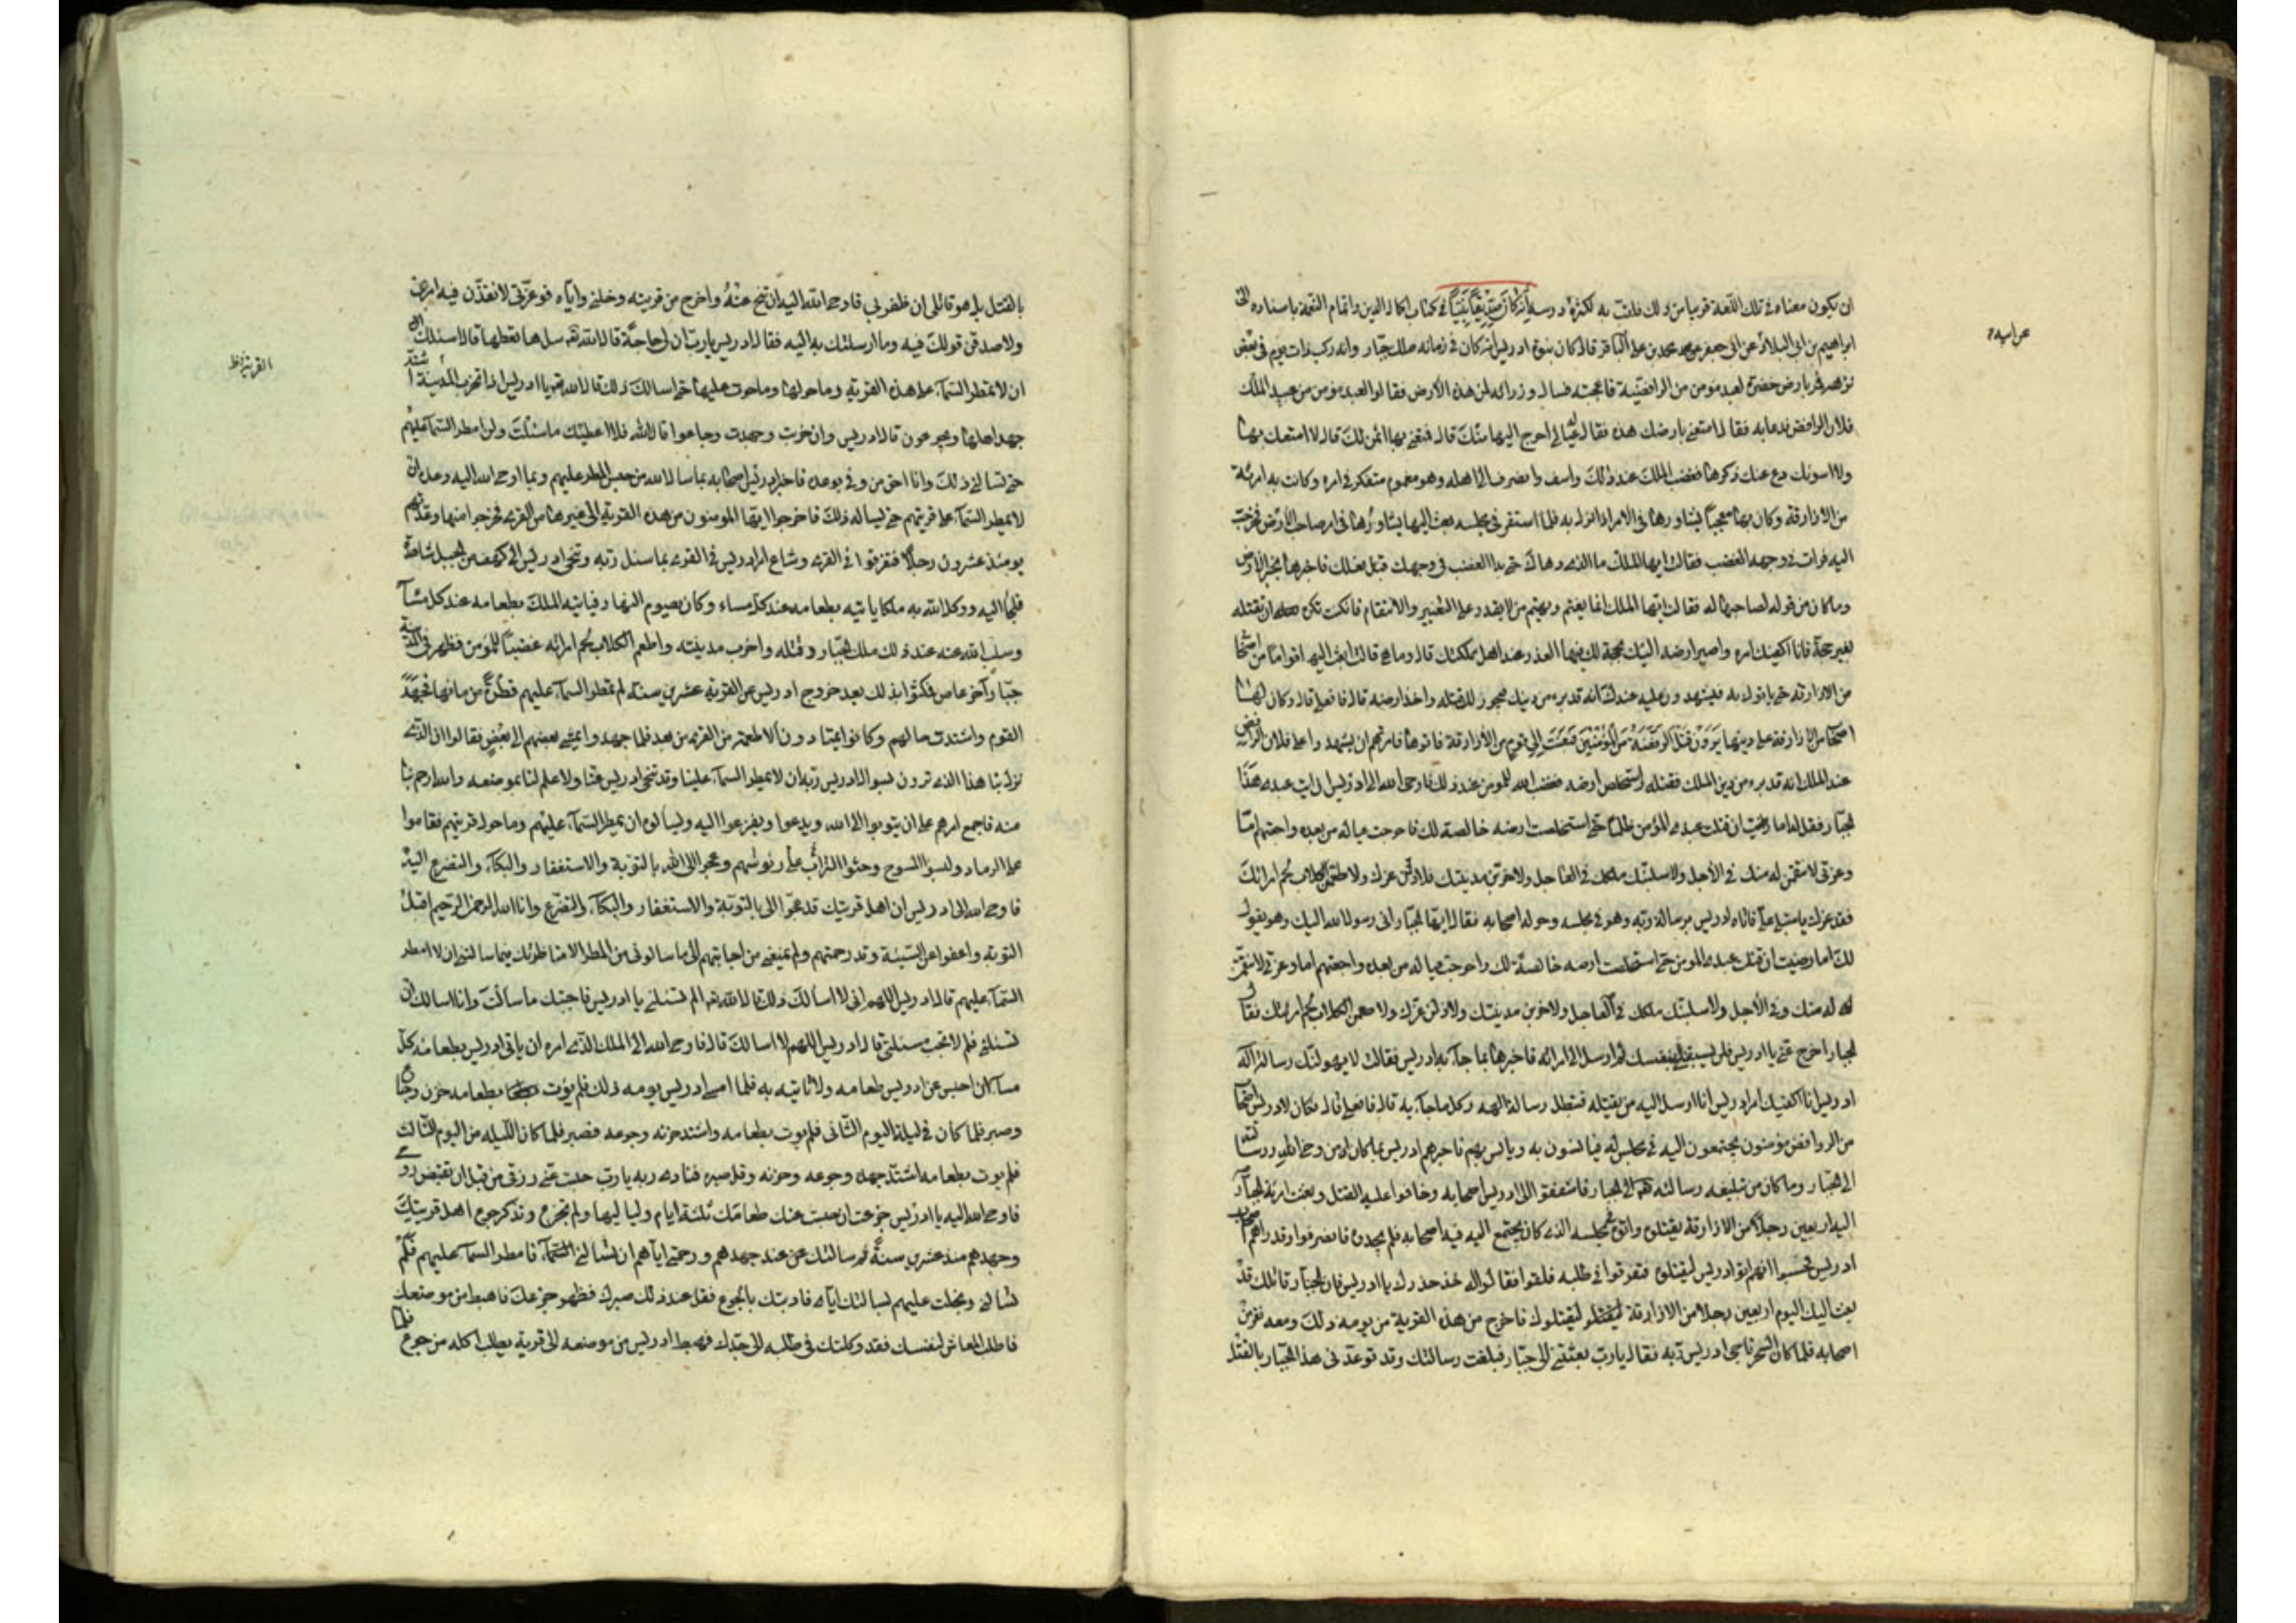 ان يكون معناه في تلك اللغة قريبا من ذلك فلقب به لكثرة درسه إنه كان صديقا نبيا في كتاب اكمال الدين واتمام النعمة باسناده الى
ابراهيم بن ابي البلاد عن ابي جعفر محمد بن علي الباقر قال كان بدو نبوة ادريس انه كان في زمانه ملك جبار وانه ركب ذات يوم في بعض
عن ابيه
نزهه فمر بارض خضرة لعبد مؤمن من الرافضية فاعجبته فسال وزراءه لمن هذه الارض فقالوا لعبد مؤمن من عبيد الملك
فلان الرافضي فدعا به فقال له امتعني بارضك هذه فقال له عيالي احوج اليها منك قال فبعني بها اثمن لك قال لا امتعك بها
ولا اسومك دع عنك ذكرها فغضب الملك عند ذلك واسف وانصرف الى اهله وهو مغموم متفكر في امره وكانت به امرئة
من الازارقة وكان بها معجبا يشاورها في الامر اذا نزل به فلما استقر في مجلسه بعث اليها يشاورها في امر صاحب الارض فخرجت
اليه فرات في وجهه الغضب فقالت ايها الملك ما الذي دهاك حتى بدا الغضب في وجهك قبل فعلك فاخبرها بخبر الارض
وما كان من قوله لصاحبها له فقالت ايها الملك انما يغتم ويهتم من لا يقدر على التغيير والانتقام فان كنت تكره ان تقتله
لغير حجة فانا اكفيك امره واصير ارضه اليك بحجة لك فيها العذر عند اهل مملكتك قال وما هي قالت ابعث اليه اقواما من اصحابي
من الازارقة حتى ياتوك به فيشهدون عليه عندك انه قد برء من دينك فيجوز لك قتله واخذ ارضه قال فافعلي قال وكان لها
اصحاب من الازارقة على دينها يرون قتل الرفضة من المؤمنين فبعثت الى قوم من الازارقة فاتوها فامرتهم ان يشهدوا على فلان الرافضي
عند الملك انه قد برء من دين الملك فقتله واستخلص ارضه فغضب الله للمؤمن عند ذلك فاوحى الله الى ادريس ان ائت عبدي هذا
الجبار فقل له اما رضيت ان قتلت عبدي المؤمن ظلما حتى استخلصت ارضه خالصة لك فاحوجت عياله من بعده واجعتهم اما
وعزتي لانتقمن له منك في الآجل ولاسلبنك ملكك في العاجل ولاخربن مدينتك ولاذلن عزك ولاطعمن الكلاب لحم امرائتك
فقد غرك يا مبتلى حلمي فاتاه ادريس برسالة ربه وهو في مجلسه وحوله اصحابه فقال ايها الجبار اني رسول الله اليك وهو يقول
لك اما رضيت ان قتلت عبدي المؤمن حتى استخلصت ارضه خالصة لك واحوجت عياله من بعده واجعتهم اما وعزتي لانتقمن
له منك في الآجل ولاسلبنك ملكك في العاجل ولاخربن مدينتك ولاذلن عزك ولاطعمن الكلاب لحم امرئتك فقال
الجبار اخرج عني يا ادريس فلن تسبقني بنفسك ثم ارسل الى امرائه فاخبرها بما جاء به ادريس فقالت لا يهولنك رسالة اله
ادريس انا اكفيك امر ادريس انا ارسل اليه من يقتله فتبطل رسالة الهه وكل ما جاء به قال فافعلي قال فكان لادريس اصحاب
من الروافض مؤمنون يجتمعون اليه في مجلس له فيانسون به ويانس بهم فاخبرهم ادريس بما كان من وحي الله ورسالته
الى الجبار وما كان من تبليغه رسالة الله الى الجبار فاشفقوا على ادريس واصحابه وخافوا عليه القتل وبعثت امرئة الجبار
اليه اربعين رجلا من الازارقة ليقتلوه واتوه في مجلسه الذي كان يجتمع اليه فيه اصحابه فلم يجدوه فانصرفوا وقد راهم اصحاب
ادريس فحسبوا انهم اتوا ادريس ليقتلوه فتفرقوا في طلبه فلقوه فقالوا له خذ حذرك يا ادريس فان الجبار قاتلك قد
بعث اليك اليوم اربعين رجلا من الازارقة ليقتلوك فاخرج من هذه القرية من يومه ذلك ومعه نفر من
اصحابه فلما كان السحر ناجى ادريس ربه فقال يا رب بعثتني الى جبار فبلغت رسالتك وقد توعدني هذا الجبار بالقتل
بالقتل بل هو قاتلي ان ظفر بي فاوحى الله اليه ان تنح عنه واخرج من قريته وخلني واياه فوعزتي لانفذن فيه امري
ولاصدقن قولك فيه وما ارسلتك به اليه فقال ادريس يا رب ان لي حاجة قال الله سل ها تعطها قال اسئلك
ان لا تمطر السماء على هذه القرية وما حولها وما حوت عليها حتى اسالك ذلك قال الله يا ادريس اذا تخرب المدينة اشتد
القرية خ ل
جهد اهلها ويجوعون قال ادريس وان خربت وجهدت وجاعوا قال الله فلا اعطيتك ما سئلت ولن امطر السماء عليهم
حتى تسالني ذلك وانا احق من وفى بوعده فاخبر ادريس اصحابه بما سال الله من حبس المطر عليهم وبما اوحى الله اليه ووعده ان
لا يمطر السماء على قريتهم حتى يساله ذلك فاخرجوا ايها المؤمنون من هذه القرية الى غيرها من القرى فخرجوا منها وعدتهم
يومئذ عشرون رجلا فتفرقوا في القرى وشاع امر ادريس في القرى بما سئل ربه وتنحى ادريس الى كهف من الجبل شاهق
فلجا اليه ووكل الله به ملكا ياتيه بطعامه عند كل مساء وكان يصوم النهار فياتيه الملك بطعامه عند كل مساء
وسلب الله عنه عند ذلك ملك الجبار وقتله واخرب مدينته واطعم الكلاب لحم امرائه غضبا للمؤمن فظهر في المدينة
جبار آخر عاص فمكثوا بذلك بعد خروج ادريس من القرية عشرين سنة لم تمطر السماء عليهم قطرة من مائها فجهد
القوم واشتدت حالهم وكانوا يمتارون الاطعمة من القرى من بعد فلما جهدوا مشى بعضهم الى بعض فقالوا ان الذي
نزل بنا هذا الذي ترون بسؤال ادريس ربه ان لا يمطر السماء علينا وقد تنحى ادريس عنا ولا علم لنا بموضعه والله ارحم بنا
منه فاجمع امرهم على ان يتوبوا الى الله ويدعوا ويفزعوا اليه ويسالوه ان يمطر السماء عليهم وما حول قريتهم فقاموا
على الرماد ولبسوا المسوح وحثوا التراب على رؤوسهم وعجوا الى الله بالتوبة والاستغفار والبكاء والتضرع اليه
فاوحى الله الى ادريس ان اهل قريتك قد عجوا الي بالتوبة والاستغفار والبكاء والتضرع وانا الله الرحمن الرحيم اقبل
التوبة واعفو عن السيئة وقد رحمتهم ولم يمنعني من اجابتهم الى ما سالوني من المطر الا مناظرتك فيما سالتني ان لا امطر
السماء عليهم قال ادريس اللهم اني لا اسالك ذلك قال الله الم تسئلني يا ادريس فاجبتك ما سالت وانا اسالك ان
تسئلني فلم لا تجب مسئلتي قال ادريس اللهم لا اسالك قال فاوحى الله الى الملك الذي امره ان ياتي ادريس بطعامه كل
مساء ان احبس عن ادريس طعامه ولا تاتيه به فلما امسى ادريس يومه ذلك فلم يؤت بطعامه حزن وجاع
وصبر فلما كان في ليلة اليوم الثاني فلم يؤت بطعامه واشتد حزنه وجوعه فصبر فلما كان الليلة من اليوم الثالث
فلم يؤت بطعامه اشتد جهده وجوعه وحزنه وقل صبره فنادى ربه يا رب حبست عني رزقي من قبل ان تقبض روحي
فاوحى الله اليه يا ادريس جزعت ان حبست عنك طعامك ثلثة ايام ولياليها ولم تجزع وتذكر جوع اهل قريتك
وجهدهم منذ عشرين سنة ثم سالتك عن عند جهدهم ورحمتي اياهم ان تسالني فامطر السماء عليهم فلم
تسالني وبخلت عليهم لمسالتك اياي فادبتك بالجوع فقل عند ذلك صبرك فظهر جزعك فاهبط من موضعك
فاطلب المعاش لنفسك فقد وكلتك في طلبه الى جهدك فهبط ادريس من موضعه الى قرية يطلب اكله من جوع فلما